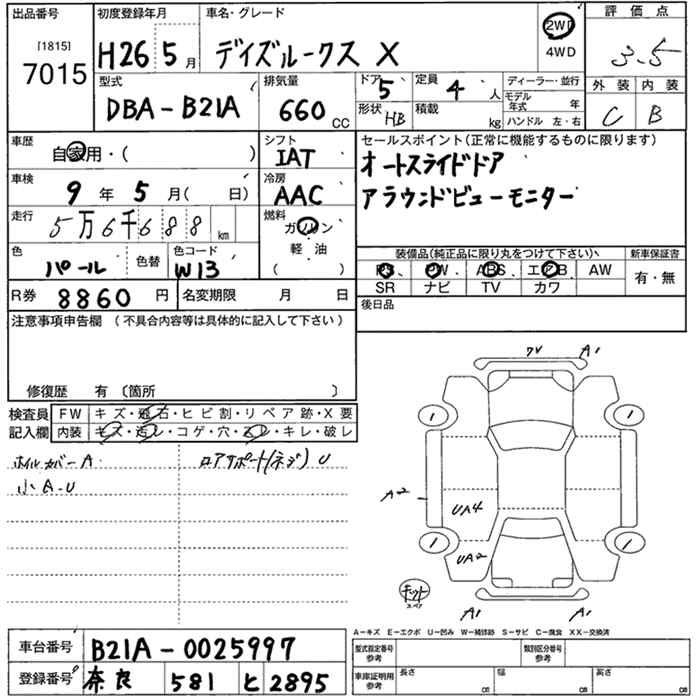 出品番号 初度登録年月 車名・グレード 評価点
[1815] 7015 H26 5月 デイズルークス X 2WD 4WD 3.5
型式 排気量 ドア 5 定員 4人 ディーラー・並行 外装 内装
DBA-B21A 660 CC 形状 HB 積載 kg モデル年式 年 ハンドル 左・右 C B
車歴 自家用・( ) シフト IAT セールスポイント(正常に機能するものに限ります)
オートスライドドア
車検 9年 5月(日) 冷房 AAC アラウンドビューモニター
走行 5万6千688km 燃料 ガソリン 軽・油 ( )
色 パール 色替 色コード W13
装備品(純正品に限り丸をつけて下さい) 新車保証書
PS PW ABS エアB AW 有・無
SR ナビ TV カワ
R券 8860円 名変期限 月 日 後日品
注意事項申告欄 (不具合内容等は具体的に記入して下さい)
修復歴 有〔箇所 〕
検査員 FW キズ・飛石・ヒビ割・リペア跡・X要
記入欄 内装 キズ・汚レ・コゲ・穴・スレ・キレ・破レ
ホイルカバーA ロアサポート(ネジ)U
小A-U
A1
A2
UA4
UA2
キット スペア
A1 A1
A-キズ E-エクボ U-凹み W-補修跡 S-サビ C-腐食 XX-交換済
車台番号 B21A-0025997 型式指定番号 参考 類別区分番号
登録番号 奈良 581 と 2895 車庫証明用 参考 長さ cm 幅 cm 高さ cm